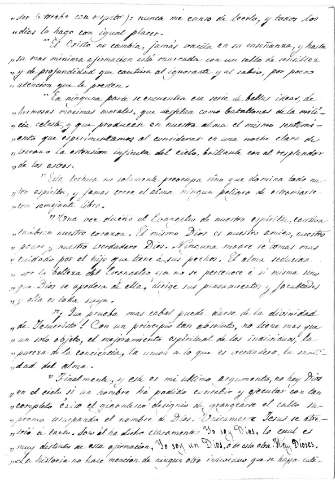 ser (y tocarlo con respeto); nunca me canso de leerlo, y todos los
„ días lo hago con igual placer.
„ "El Cristo no cambia, jamás vacila en su enseñanza, y hasta
„ su mas mínima afirmacion está marcada con un sello de sencillez
„ y de profundidad que cautiva al ignorante y al sabio, por poca
„ atencion que le presten.
„ "En ninguna parte se encuentra esa serie de bellas ideas, de
„ hermosas máximas morales, que desfilan como batallones de la mili-
„ cia celeste y que producen en nuestra alma el mismo senti-
„ miento que experimentamos al considerar en una noche clara de
„ verano la estension infinita del cielo, brillante con el resplandor
„ de los astros.
„ lectura no solamente preocupa sino que domina todo nu-
„ estro espíritu, y jamás corre el alma ningun peligro de estraviarse
„ con semejante libro.
„ "Una vez dueño el Evangelio de nuestro espíritu, cautiva
„ tambien nuestro corazon. El mismo Dios es nuestro amigo, nuestro
„ padre y nuestro verdadero Dios. Ninguna madre se tomas mas
„ cuidado por el hijo que tiene á sus pechos. El alma seducida
„ por la belleza del Evangelio ya no se pertenece á sí misma sino
„ que Dios se apodera de ella, dirige sus pensamientos y facultades
„ y ella es toda suya.
„ "¡La prueba mas cabal puede darse de la divinidad
„ de Jesucristo! Con un principio tan absoluto, no tiene mas que
„ un solo objeto, el mejoramiento espiritual de los individuos, la
„ pureza de la conciencia, la union á lo que es verdadero, la santi-
„ dad del alma.
„ "Finalmente, y este es mi último argumento, no hay Dios
„ en el cielo si un hombre ha podido concebir y ejecutar con tan
„ completo éxito el gigantesco designio de arrogarse el culto su-
„ premo usurpando el nombre de Dios. Unicamente Jesus se atre-
„ vió á tanto. Solo él ha dicho claramente: Yo soy Dios, lo cual es
„ muy distinto de esta afirmacion, Yo soy un Dios, ó de esta otra: Hay Dioses.
„ La historia no hace mencion de ningun otro individuo que se haya